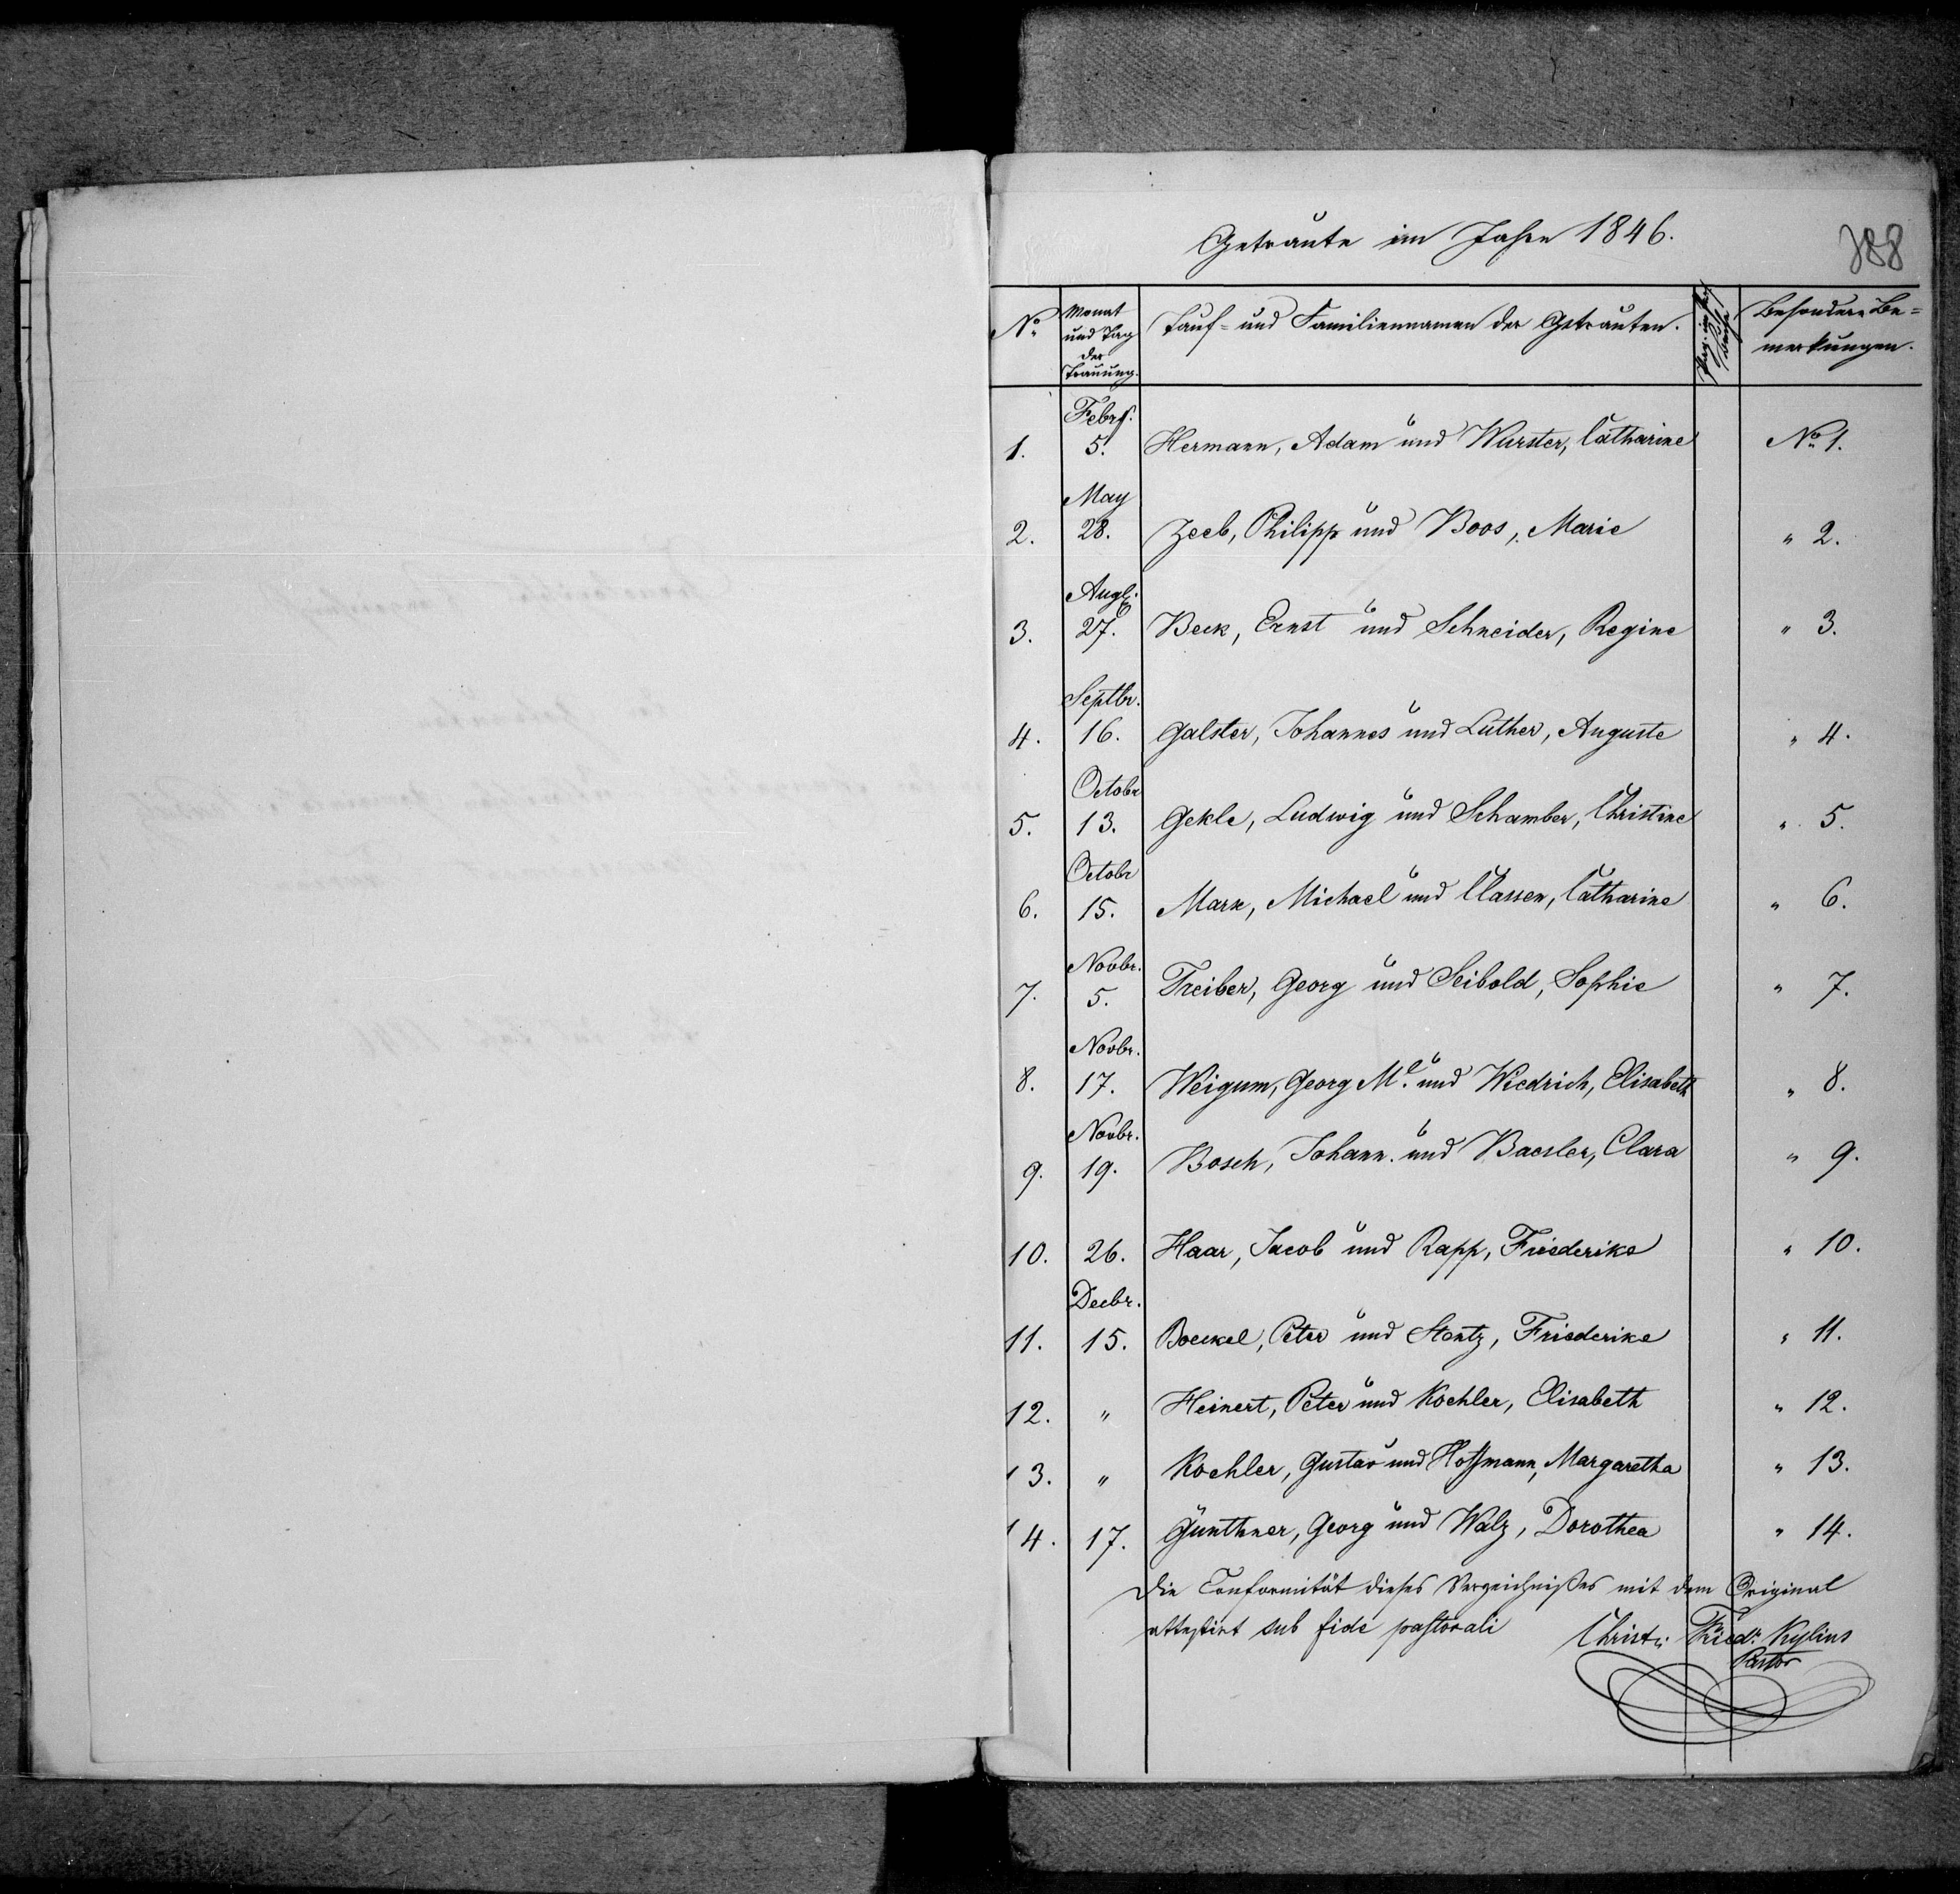 Getraute im Jahre 1846.
388
No
Monat und Tag der Trauung.
Tauf- und Familiennamen der Getrauten.
Besondere Bemerkungen.
1. Febr. 5. Hermann, Adam und Wurster, Catharine No 1.
2. May 28. Zeeb, Philipp und Boos, Marie " 2.
3. Augst. 27. Beck, Ernst und Schneider, Regine " 3.
4. Septbr. 16. Galster, Johannes und Luther, Auguste " 4.
5. Octobr 13. Gekle, Ludwig und Schamber, Christine " 5.
6. Octobr 15. Mark, Michael und Classen, Catharine " 6.
7. Novbr. 5. Treiber, Georg und Seibold, Sophie " 7.
8. Novbr. 17. Weigum, Georg Ml. und Wiedrich, Elisabeth " 8.
9. Novbr. 19. Bosch, Johann. und Baesler, Clara " 9.
10. 26. Haar, Jacob und Rapp, Friederike " 10.
11. Decbr. 15. Boeckel, Peter und Stentz, Friederike " 11.
12. " Heinert, Peter und Koehler, Elisabeth " 12.
13. " Koehler, Gustav und Hoffmann, Margaretha " 13.
14. 17. Günthner, Georg und Walz, Dorothea " 14.
Die Conformität dieses Verzeichnißes mit dem Original
attestirt sub fide pastorali Christ. Friedr. Kylius
Pastor